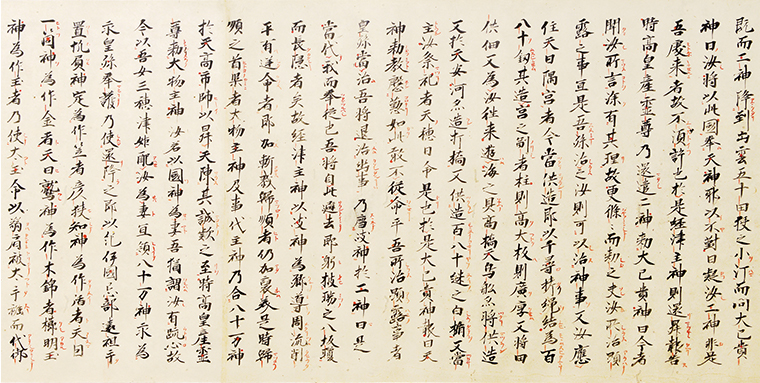 既而二神降到出雲五十田狹之小汀而問大己貴
神曰汝將以此國奉天神耶以不對曰疑汝二神非是
吾處來者故不須許也於是經津主神則還昇報告
時高皇產靈尊乃還遣二神勅大己貴神曰今者
聞汝所言深有其理故更條々而勅之夫汝所治顯
露之事宜是吾孫治之汝則可以治神事又汝應
住天日隅宮者今當供造即以千尋栲繩結為百
八十紐其造宮之制者柱則高大板則廣厚又將田
供佃又為汝往來遊海之具高橋天鳥船亦將供造
又於天安河亦造打橋又供造百八十縫之白楯又當
主汝祭祀者天穗日命是也於是大己貴神報曰天
神勅教慇懃如此敢不從命乎吾所治顯露事者
皇孫當治吾將退治幽事乃薦岐神於二神曰是
當代我而奉從也吾將自此避去即躬被瑞之八坂瓊
而長隱者矣故經津主神以岐神為鄉導周流削
平有逆命者即加斬戮歸順者仍加襃美是時歸
順之首渠者大物主神及事代主神乃合八十万神
於天高市帥以昇天陳其誠款之至時高皇產靈
尊勅大物主神汝若以國神為妻吾猶謂汝有疏心故
今以吾女三穗津姬配汝為妻宜領八十万神永為
皇孫奉護乃使還降之即以紀伊國忌部遠祖手
置帆負神定為作笠者彥狹知神為作盾者天目
一箇神為作金者天日鷲神為作木綿者櫛明玉
神為作玉者乃使太玉命以弱肩被太手繦而代御